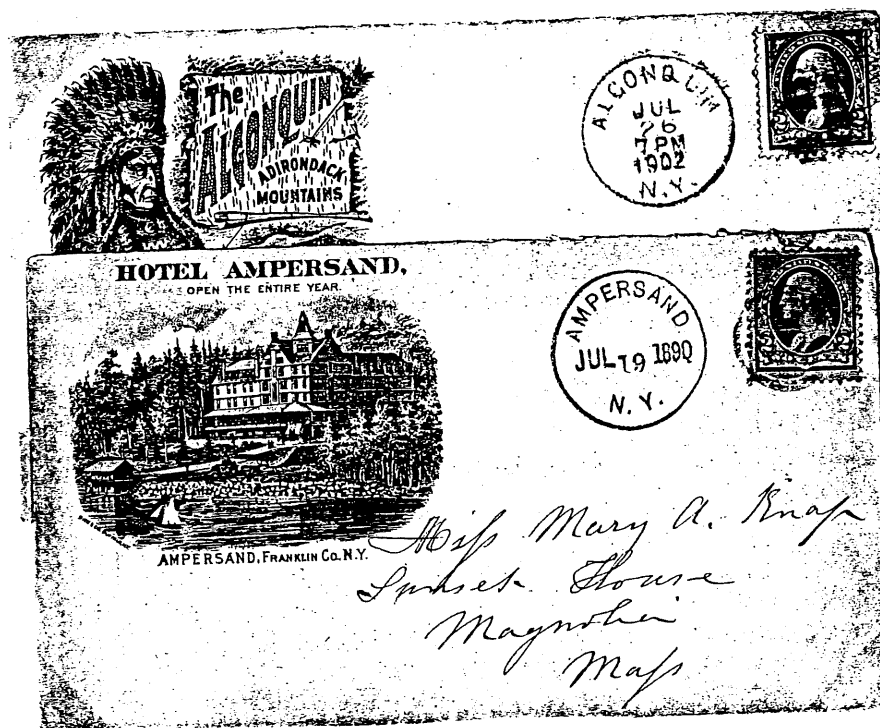 The
ALGONQUIN
ADIRONDACK
MOUNTAINS
ALGONQUIN
JUL
26
7PM
1902
N.Y.
HOTEL AMPERSAND,
OPEN THE ENTIRE YEAR.
AMPERSAND
JUL 19 1890
N.Y.
AMPERSAND, FRANKLIN CO. N.Y.
Miss Mary A. Knap
Sunset House
Magnolia
Mass